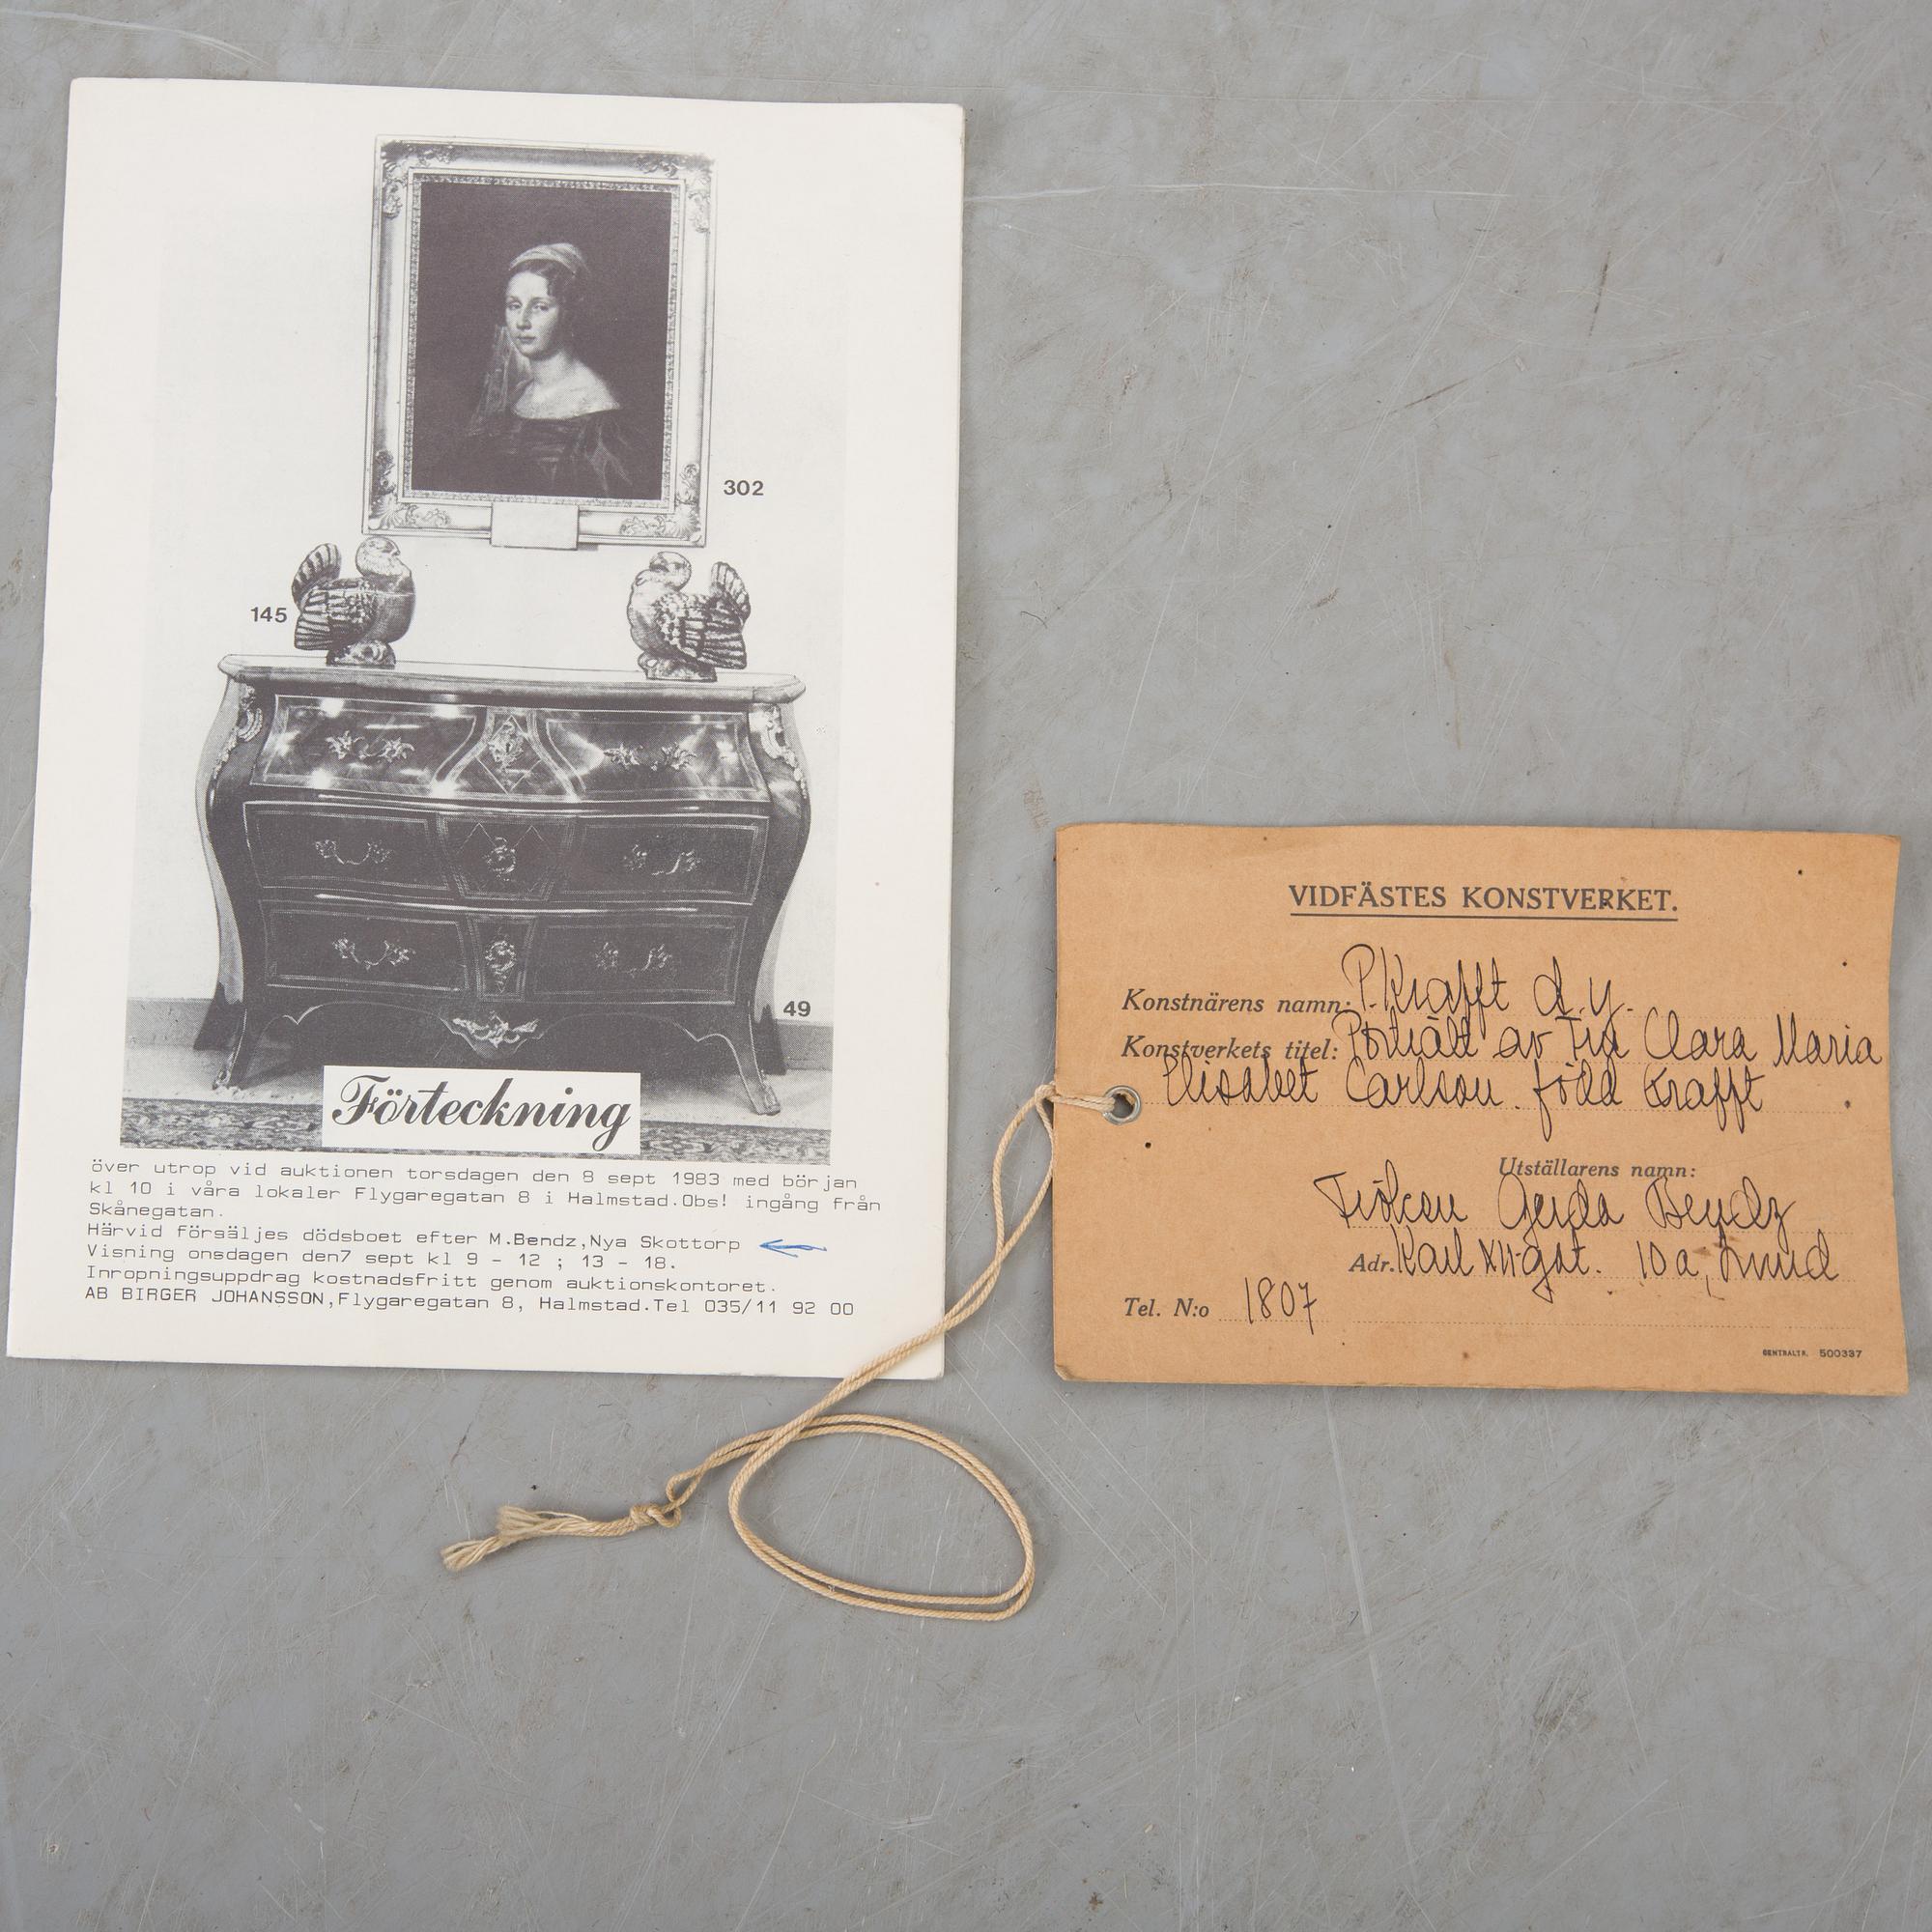 302
145
49
Förteckning
över utrop vid auktionen torsdagen den 8 sept 1983 med början
kl 10 i våra lokaler Flygaregatan 8 i Halmstad.Obs! ingång från
Skånegatan.
Härvid försäljes dödsboet efter M.Bendz,Nya Skottorp
Visning onsdagen den7 sept kl 9 - 12 ; 13 - 18.
Inropningsuppdrag kostnadsfritt genom auktionskontoret.
AB BIRGER JOHANSSON,Flygaregatan 8, Halmstad.Tel 035/11 92 00
VIDFÄSTES KONSTVERKET.
Konstnärens namn: P. Krafft d.y.
Konstverkets titel: Porträtt av Fru Clara Maria
Elisabet Carlson. född Krafft
Utställarens namn:
Fröken Gerda Bendz
Adr. Karl XII-gat. 10 a, Lund
Tel. N:o 1807
CENTRALTR. 500337